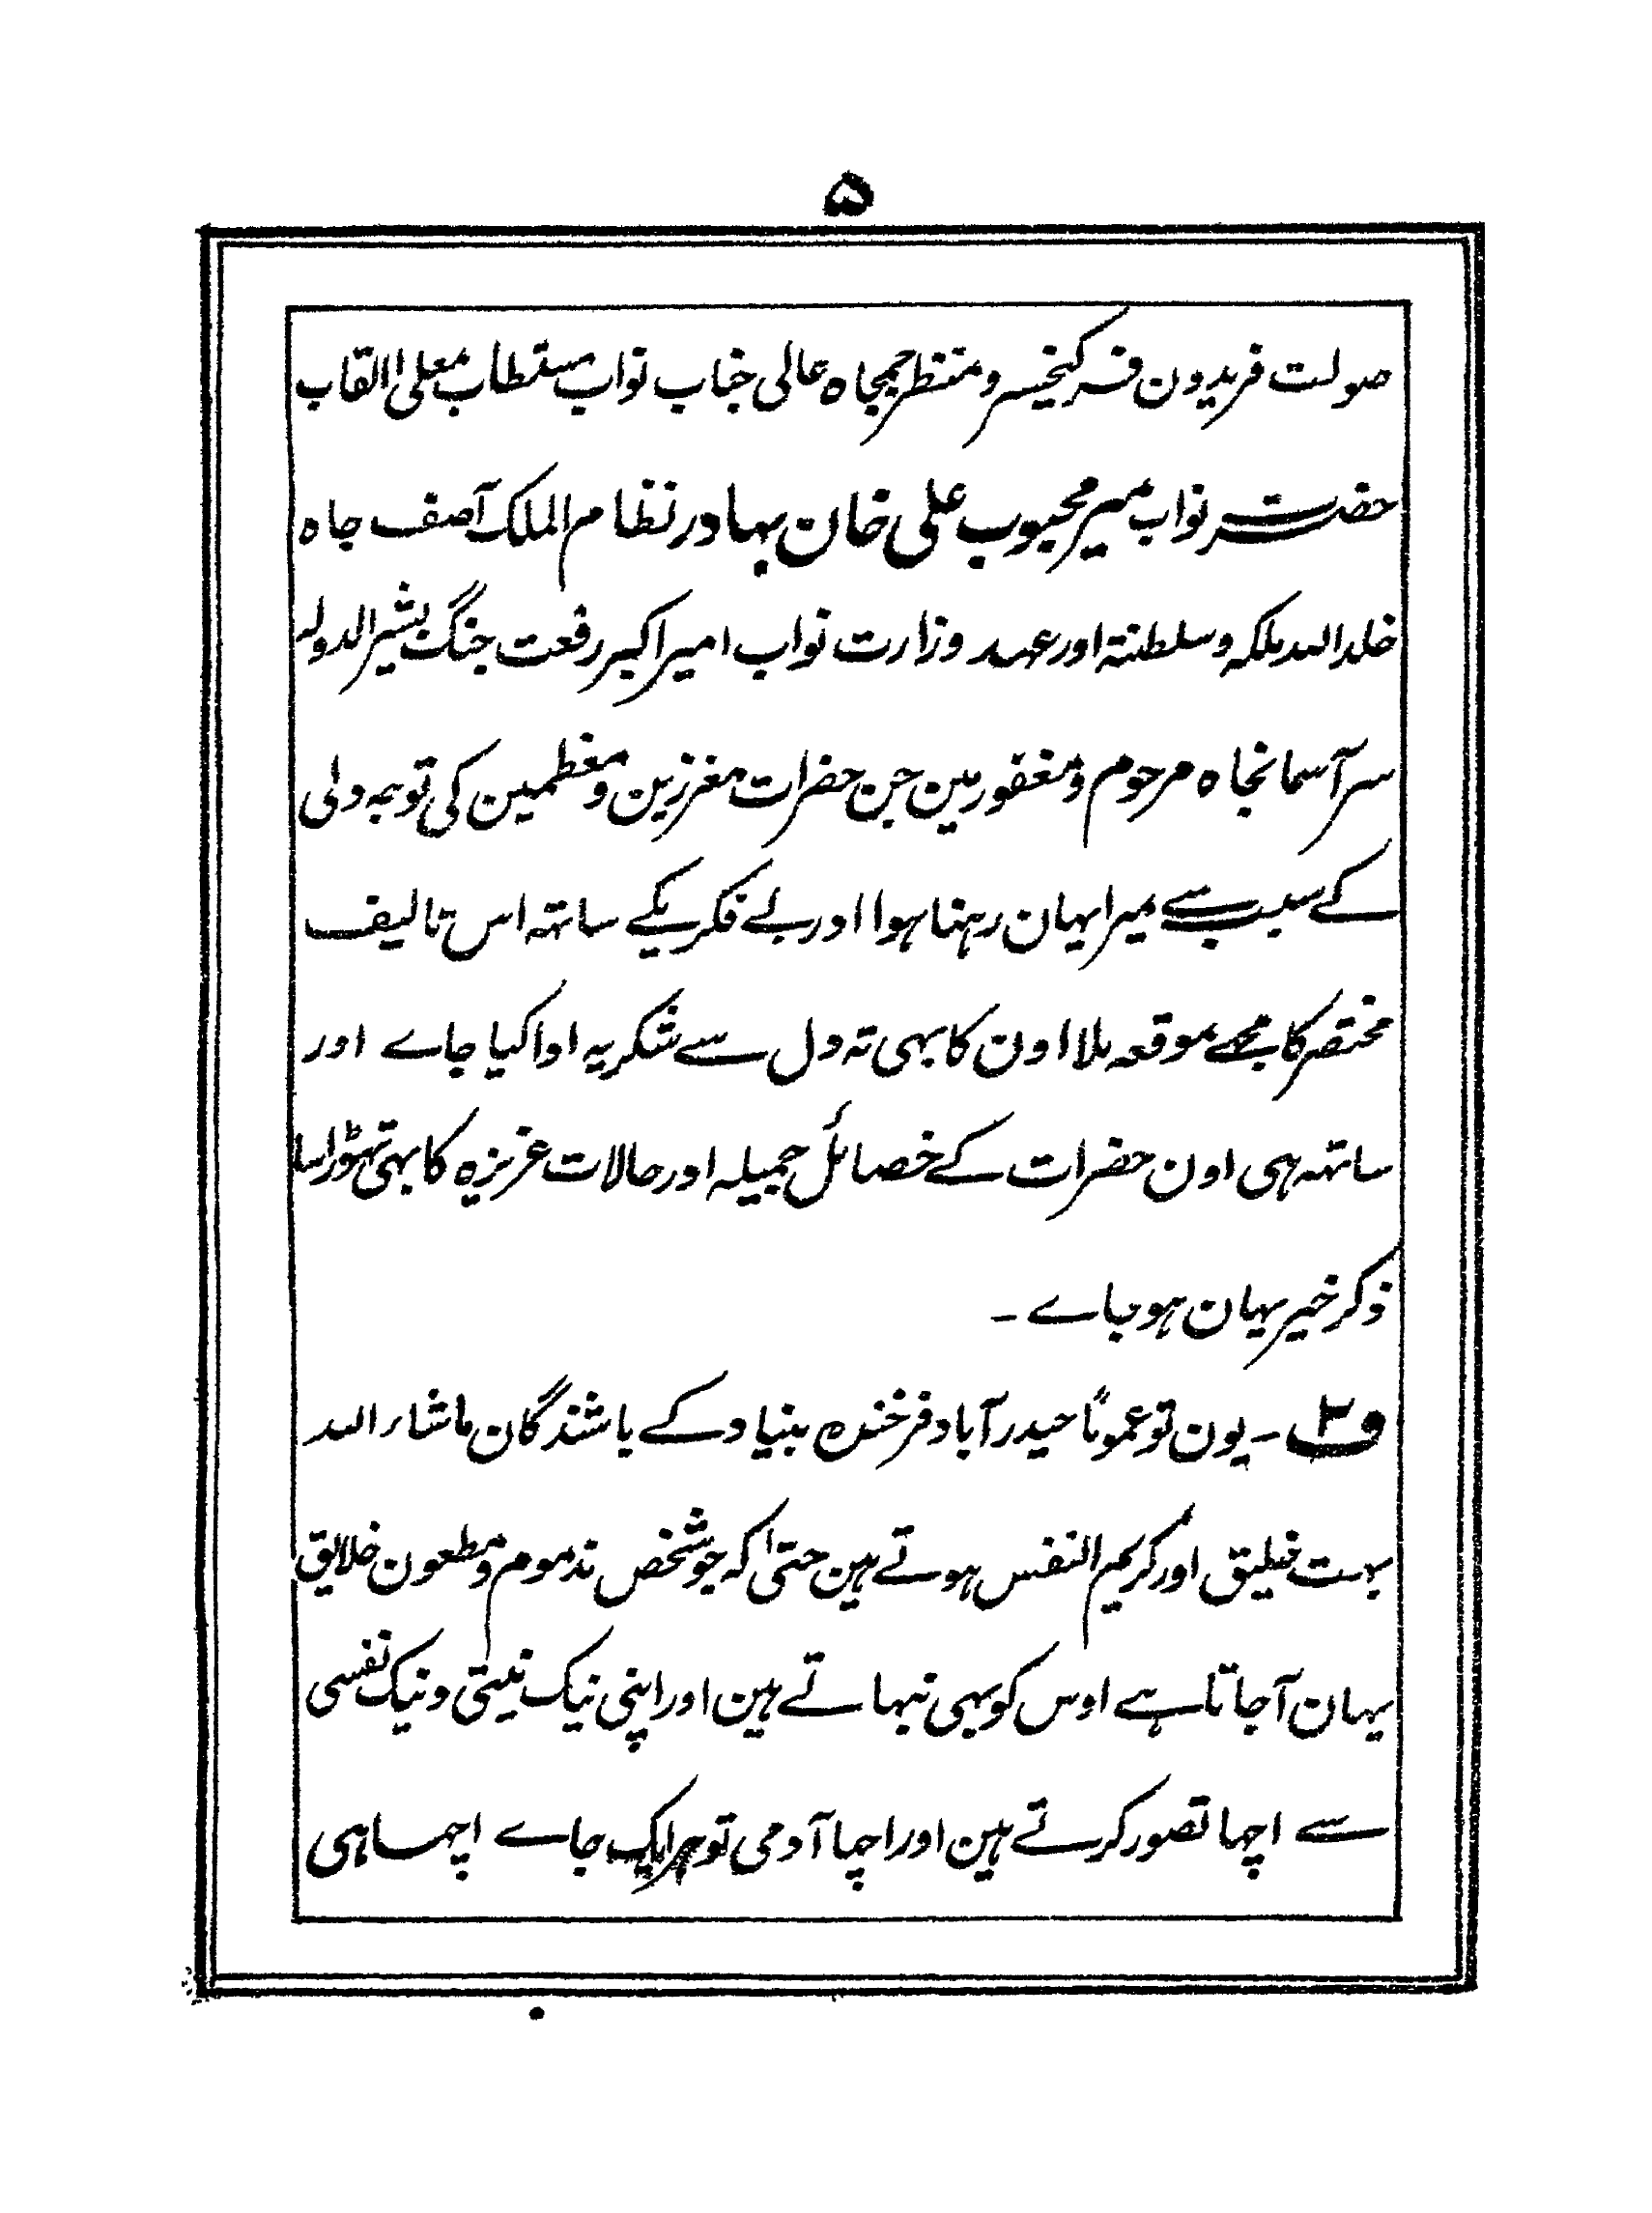 ۵
صولت فریدون فر کیخسرو منظر جمجاہ عالی جناب نواب مستطاب معلی القاب
حضرت نواب میر محبوب علی خان بہادر نظام الملک آصف جاہ
خلد اللہ ملکہ و سلطنتہ اور عہد وزارت نواب امیر اکبر رفعت جنگ بشیر الدولہ
سر آسمانجاہ مرحوم و مغفور مین جن حضرات معززین و معظمین کی توجہ دلی
کے سبب سے میرا یہان رہنا ہوا اور بے فکریکے ساتہہ اس تالیف
مختصر کا مجھے موقعہ ملا اون کا بہی تہ دل سے شکریہ ادا کیا جاے اور
ساتہہ ہی اون حضرات کے خصائل جمیلہ اور حالات عزیزہ کا بہی تہوڑا سا
ذکر خیر یہان ہو جاے ۔
ف۳ ۔ یون تو عموماً حیدرآباد فرخندہ بنیاد کے باشندگان ماشاء اللہ
بہت خلیق اور کریم النفس ہوتے ہین حتیٰ کہ جو شخص مذموم و مطعون خلایق
یہان آجاتا ہے اوس کو بہی نبہاتے ہین اور اپنی نیک نیتی و نیک نفسی
سے اچہا تصور کرتے ہین اور اچہا آدمی تو ہر ایک جاے اچہا ہی